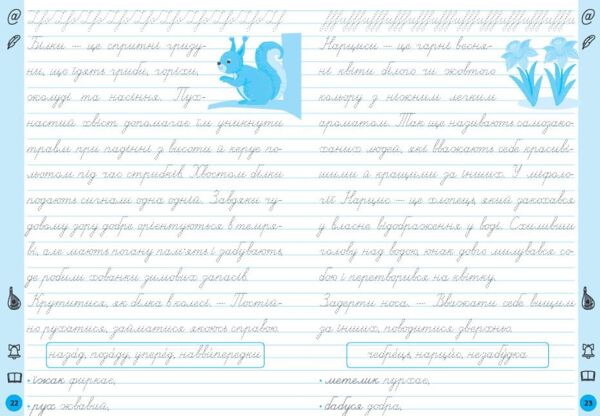 Білки — ще спритні гризу-
ни, що їдять гриби, горіхи,
жолуді та насіння. Пух-
настий хвіст допомагає їм уникнути
травм при падінні з висоти й керує по-
льотом під час стрибків. Хвостом білки
подають сигнали одна одній. Завдяки чу-
довому зору добре орієнтуються в темря-
ві, але мають погану пам'ять і забувають,
де робили хованки зимових запасів.
Крутитися, як білка в колесі. — Постій-
но рухатися, займатися якоюсь справою.
наза́д, поза́ду, упере́д, наввипередки
• їжак фиркає,
• рух жвавий,
22
Нарциси — ще гарні весня-
ні квіти білого чи жовтого
кольору з ніжним легким
ароматом. Так ще називають самозако-
ханих людей, які вважають себе красиві-
шими й кращими за інших. У міфоло-
гії Нарцис — це хлопець, який закохався
у власне відображення у воді. Схиливши
голову над водою, юнак довго милувався со-
бою і перетворився на квітку.
Задерти носа. — Вважати себе вищим
за інших, поводитися зверхньо.
чебре́ць, нарци́с, незабу́дка
• метелик пурхає,
• бабуся добра,
23